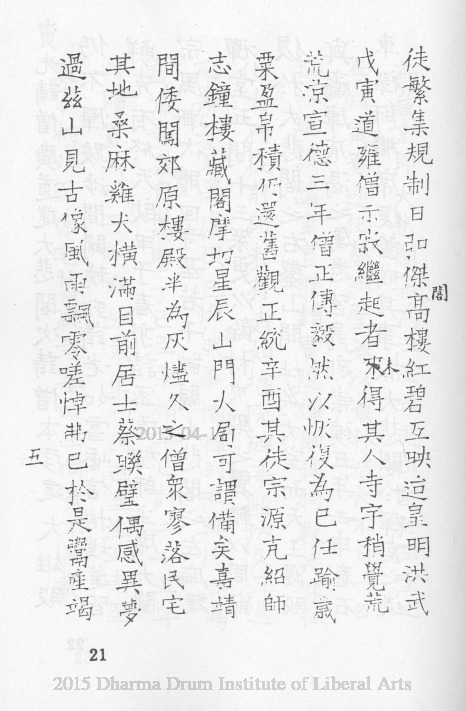 徒繁集規制日弘傑閣高樓紅碧互映迨皇明洪武
戊寅道雍僧示寂繼起者未得其人寺宇稍覺荒
荒凉宣德三年僧正傳毅然以恢復為已任踰歲
粟盈帛積仍還舊觀正統辛酉其徒宗源克紹師
志鐘樓藏閣摩切星辰山門火局可謂備矣嘉靖
間倭闖郊原樓殿半為灰燼久之僧衆寥落民宅
其地桑麻雞犬橫滿目前居士蔡璧偶感異夢
過玆山見古像風雨飄零嗟悼弗已於是鬻產竭
五
21
2015-04-1
2015 Dharma Drum Institute of Liberal Arts